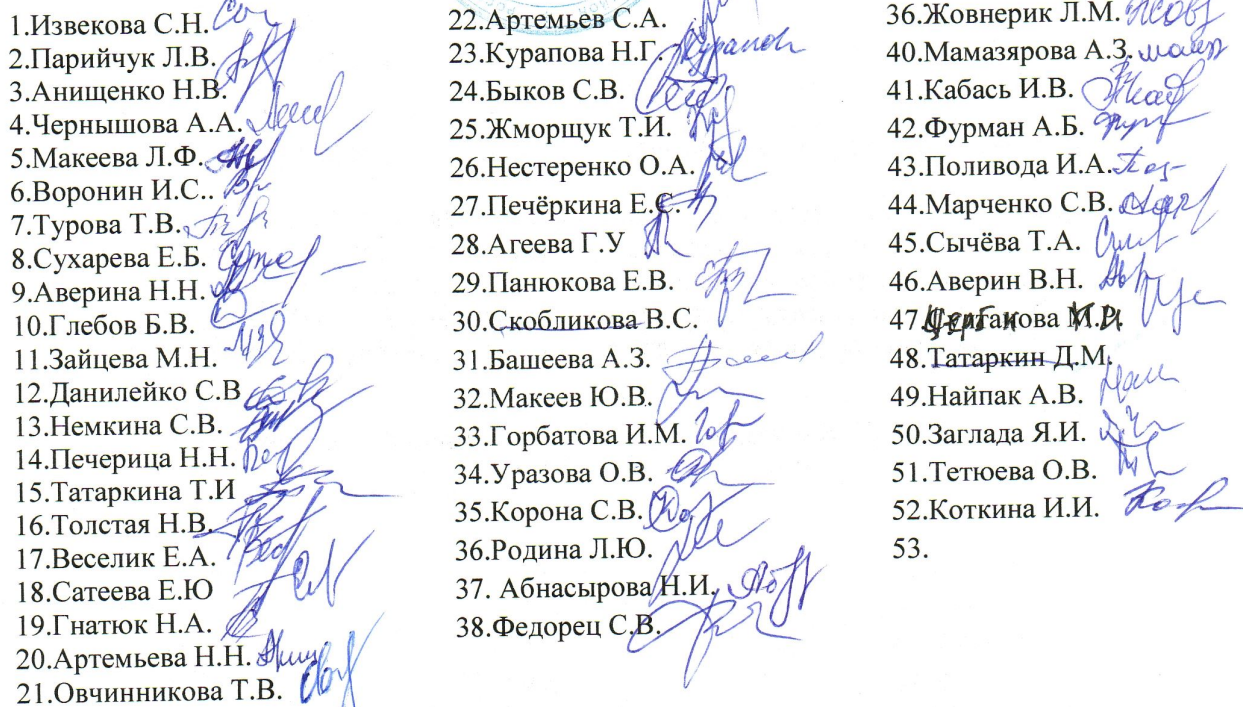 1.Извекова С.Н.
2.Парийчук Л.В.
3.Анищенко Н.В.
4.Чернышова А.А.
5.Макеева Л.Ф.
6.Воронин И.С..
7.Турова Т.В.
8.Сухарева Е.Б.
9.Аверина Н.Н.
10.Глебов Б.В.
11.Зайцева М.Н.
12.Данилейко С.В
13.Немкина С.В.
14.Печерица Н.Н.
15.Татаркина Т.И
16.Толстая Н.В.
17.Веселик Е.А.
18.Сатеева Е.Ю
19.Гнатюк Н.А.
20.Артемьева Н.Н.
21.Овчинникова Т.В.
22.Артемьев С.А.
23.Курапова Н.Г.
24.Быков С.В.
25.Жморщук Т.И.
26.Нестеренко О.А.
27.Печёркина Е.С.
28.Агеева Г.У
29.Панюкова Е.В.
30.Скобликова В.С.
31.Башеева А.З.
32.Макеев Ю.В.
33.Горбатова И.М.
34.Уразова О.В.
35.Корона С.В.
36.Родина Л.Ю.
37. Абнасырова Н.И.
38.Федорец С.В.
36.Жовнерик Л.М.
40.Мамазярова А.З.
41.Кабась И.В.
42.Фурман А.Б.
43.Поливода И.А.
44.Марченко С.В.
45.Сычёва Т.А.
46.Аверин В.Н.
47.
48.Татаркин Д.М.
49.Найпак А.В.
50.Заглада Я.И.
51.Тетюева О.В.
52.Коткина И.И.
53.